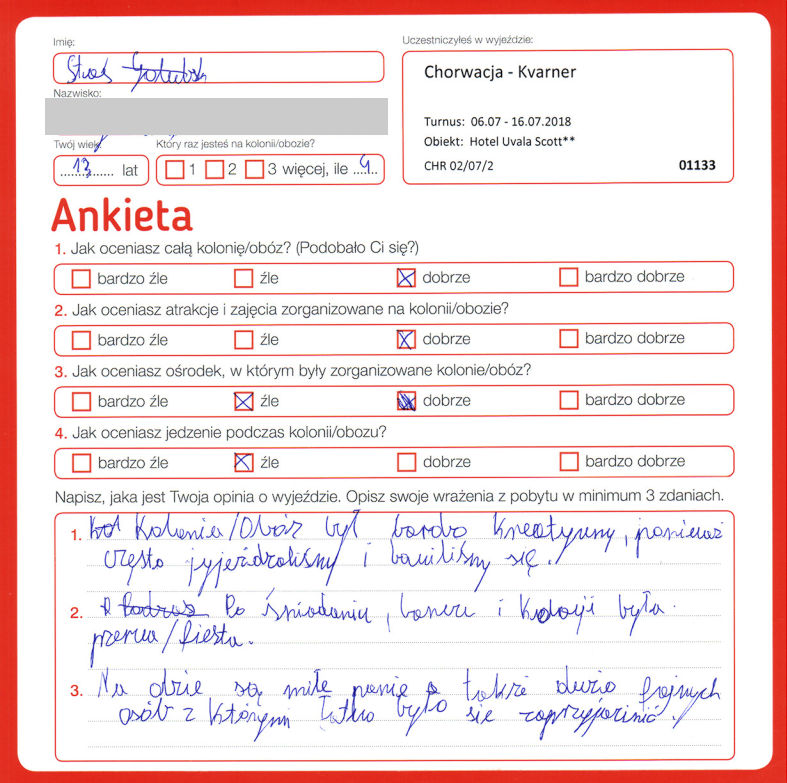 Imię:
Nazwisko:
Twój wiek
13 lat
Który raz jesteś na kolonii/obozie?
1 2 3 więcej, ile 4
Uczestniczyłeś w wyjeździe:
Chorwacja - Kvarner
Turnus: 06.07 - 16.07.2018
Obiekt: Hotel Uvala Scott**
CHR 02/07/2 01133
Ankieta
1. Jak oceniasz całą kolonię/obóz? (Podobało Ci się?)
bardzo źle źle dobrze bardzo dobrze
2. Jak oceniasz atrakcje i zajęcia zorganizowane na kolonii/obozie?
bardzo źle źle dobrze bardzo dobrze
3. Jak oceniasz ośrodek, w którym były zorganizowane kolonie/obóz?
bardzo źle źle dobrze bardzo dobrze
4. Jak oceniasz jedzenie podczas kolonii/obozu?
bardzo źle źle dobrze bardzo dobrze
Napisz, jaka jest Twoja opinia o wyjeździe. Opisz swoje wrażenia z pobytu w minimum 3 zdaniach.
1. Kolonia/Obóz był bardo kreatywny, ponieważ
często jyjeździliśmy i bawiliśmy się.
2. Po śniadaniu, i Kolacji była
przerwa/fiesta.
3. Na są miłe panie a także dużo fajnych
osób z którymi łatwo było się zaprzyjaźnić.